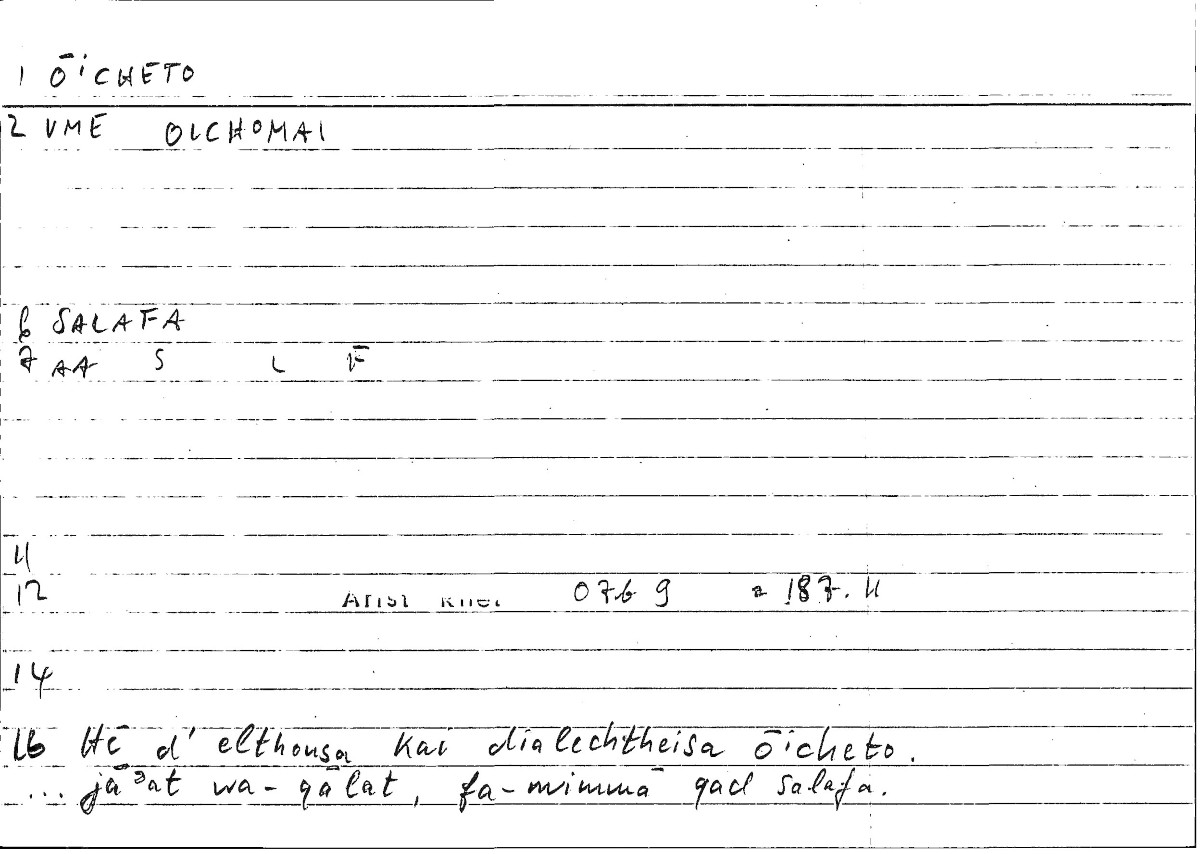 1 ŌICHETO
2 VME OICHOMAI
6 SALAFA
7 AA S L F
11
12 Arist Rhet 07b 9 = 187.11
14
16 Hē d' elthousa kai dialechtheisa ōicheto.
... jāʾat wa-qālat, fa-mimmā qad salafa.